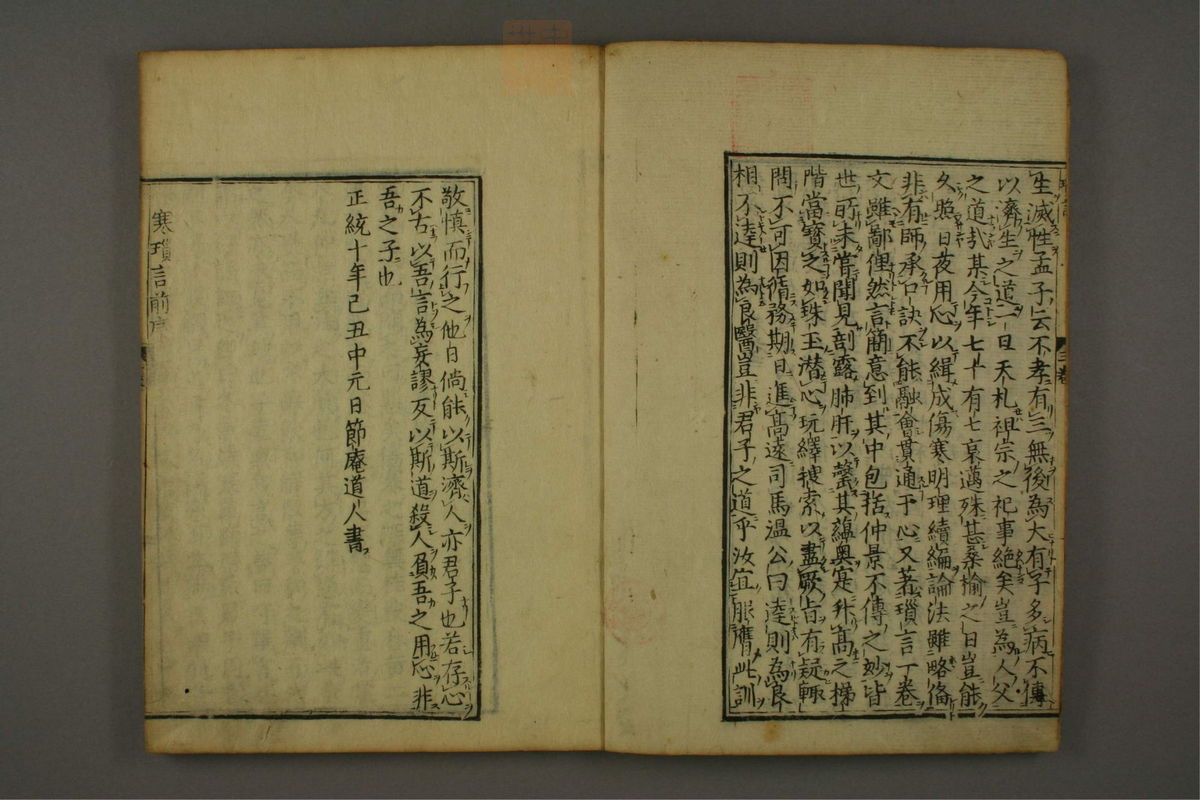 生滅性孟子云不孝有三無後為大有子多病不傳
以濟生之道一旦夭札祖宗之祀事絕矣豈為人父
之道哉某今年七十有七衰邁殊甚桑榆之日豈能
久照日夜用心以緝成傷寒明理續編論法雖略備
非有師承口訣不能融會貫通于心又著瑣言一卷
文雖鄙俚然言簡意到其中包括仲景不傳之妙皆
世所未嘗聞見剖露肺肝以罄其蘊奧寔升高之梯
階當寶之如珠玉潜心玩繹搜索以盡厥旨有疑輒
問不可因循務期日進高遠司馬温公曰達則為良
相不達則為良醫豈非君子之道乎汝宜服膺此訓
敬慎而行之他日倘能以斯濟人亦君子也若存心
不古以吾言為妄謬反以斯道殺人負吾之用心非
吾之子也
正統十年己丑中元日節庵道人書
寒瑣言前序